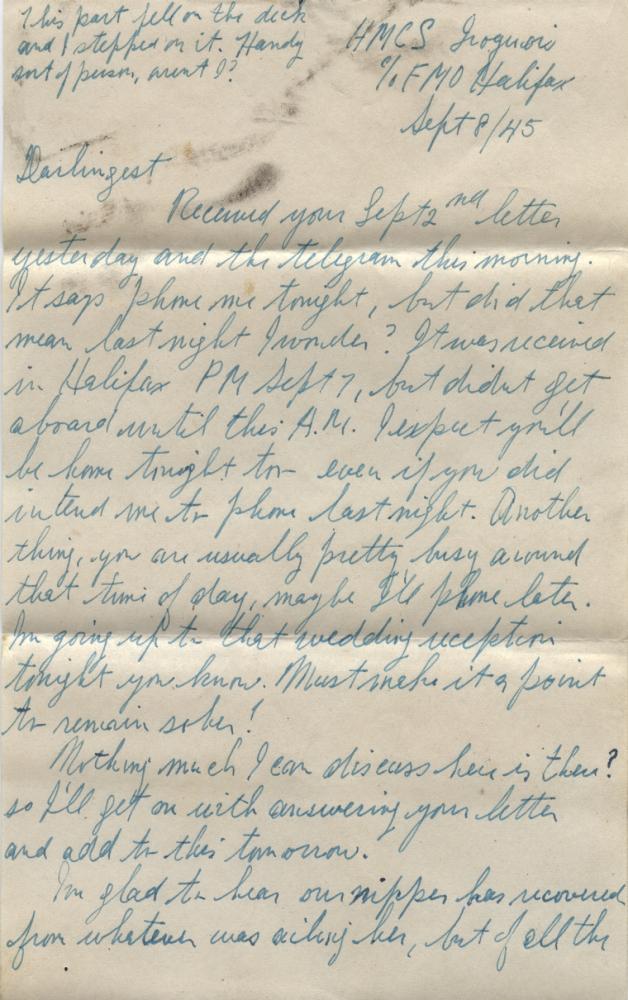 This part fell on the deck
and I stepped on it. Handy
sort of person, arent I?
HMCS Iroquois
% FMO Halifax
Sept 8/45
Darlingest
Received your Sept 2nd letter
yesterday and the telegram this morning.
It says phone me tonight, but did that
mean last night I wonder? It was received
in Halifax PM Sept 7, but didnt get
aboard until this A.M. I expect you'll
be home tonight to- even if you did
intend me to phone last night. Another
thing, you are usually pretty busy around
that time of day, maybe I'll phone later.
Im going up to that wedding reception
tonight you know. Must make it a point
to remain sober!
Nothing much I can discuss here is there?
so I'll get on with answering your letter
and add to this tomorrow.
Im glad to hear our nipper has recovered
from whatever was ailing her, but of all the